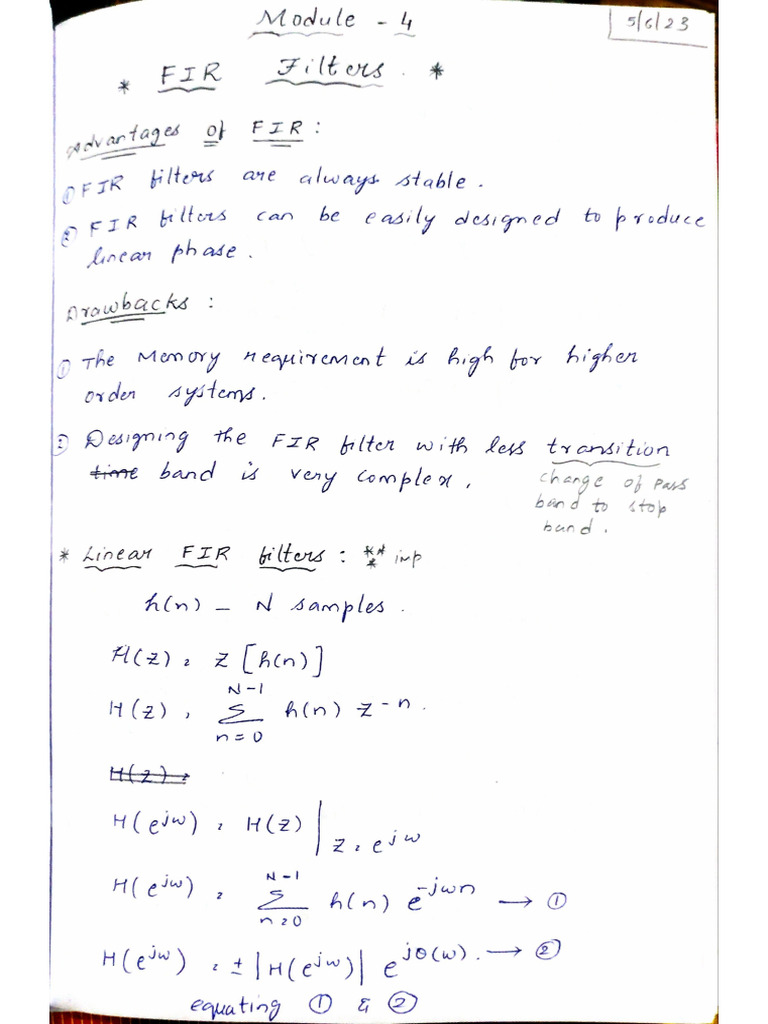 Module - 4
5/6/23
* FIR Filters. *
Advantages of FIR :
① FIR filters are always stable.
② FIR filters can be easily designed to produce
linear phase.
Drawbacks :
① The Memory requirement is high for higher
order systems.
② Designing the FIR filter with less transition
time band is very complex.
change of pass
band to stop
band.
* Linear FIR filters : *** imp
h(n) - N samples.
H(z) = Z [h(n)]
N-1
H(z) = Σ h(n) z^-n.
n=0
H(z) =
H(e^jω) = H(z) | z = e^jω
N-1
H(e^jω) = Σ h(n) e^-jωn → ①
n=0
H(e^jω) = ± |H(e^jω)| e^jθ(ω). → ②
equating ① & ②